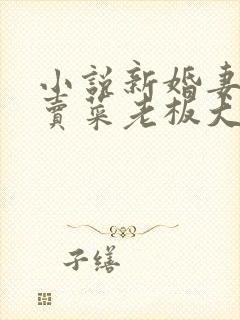 小说新婚妻
卖菜老板大
子缮